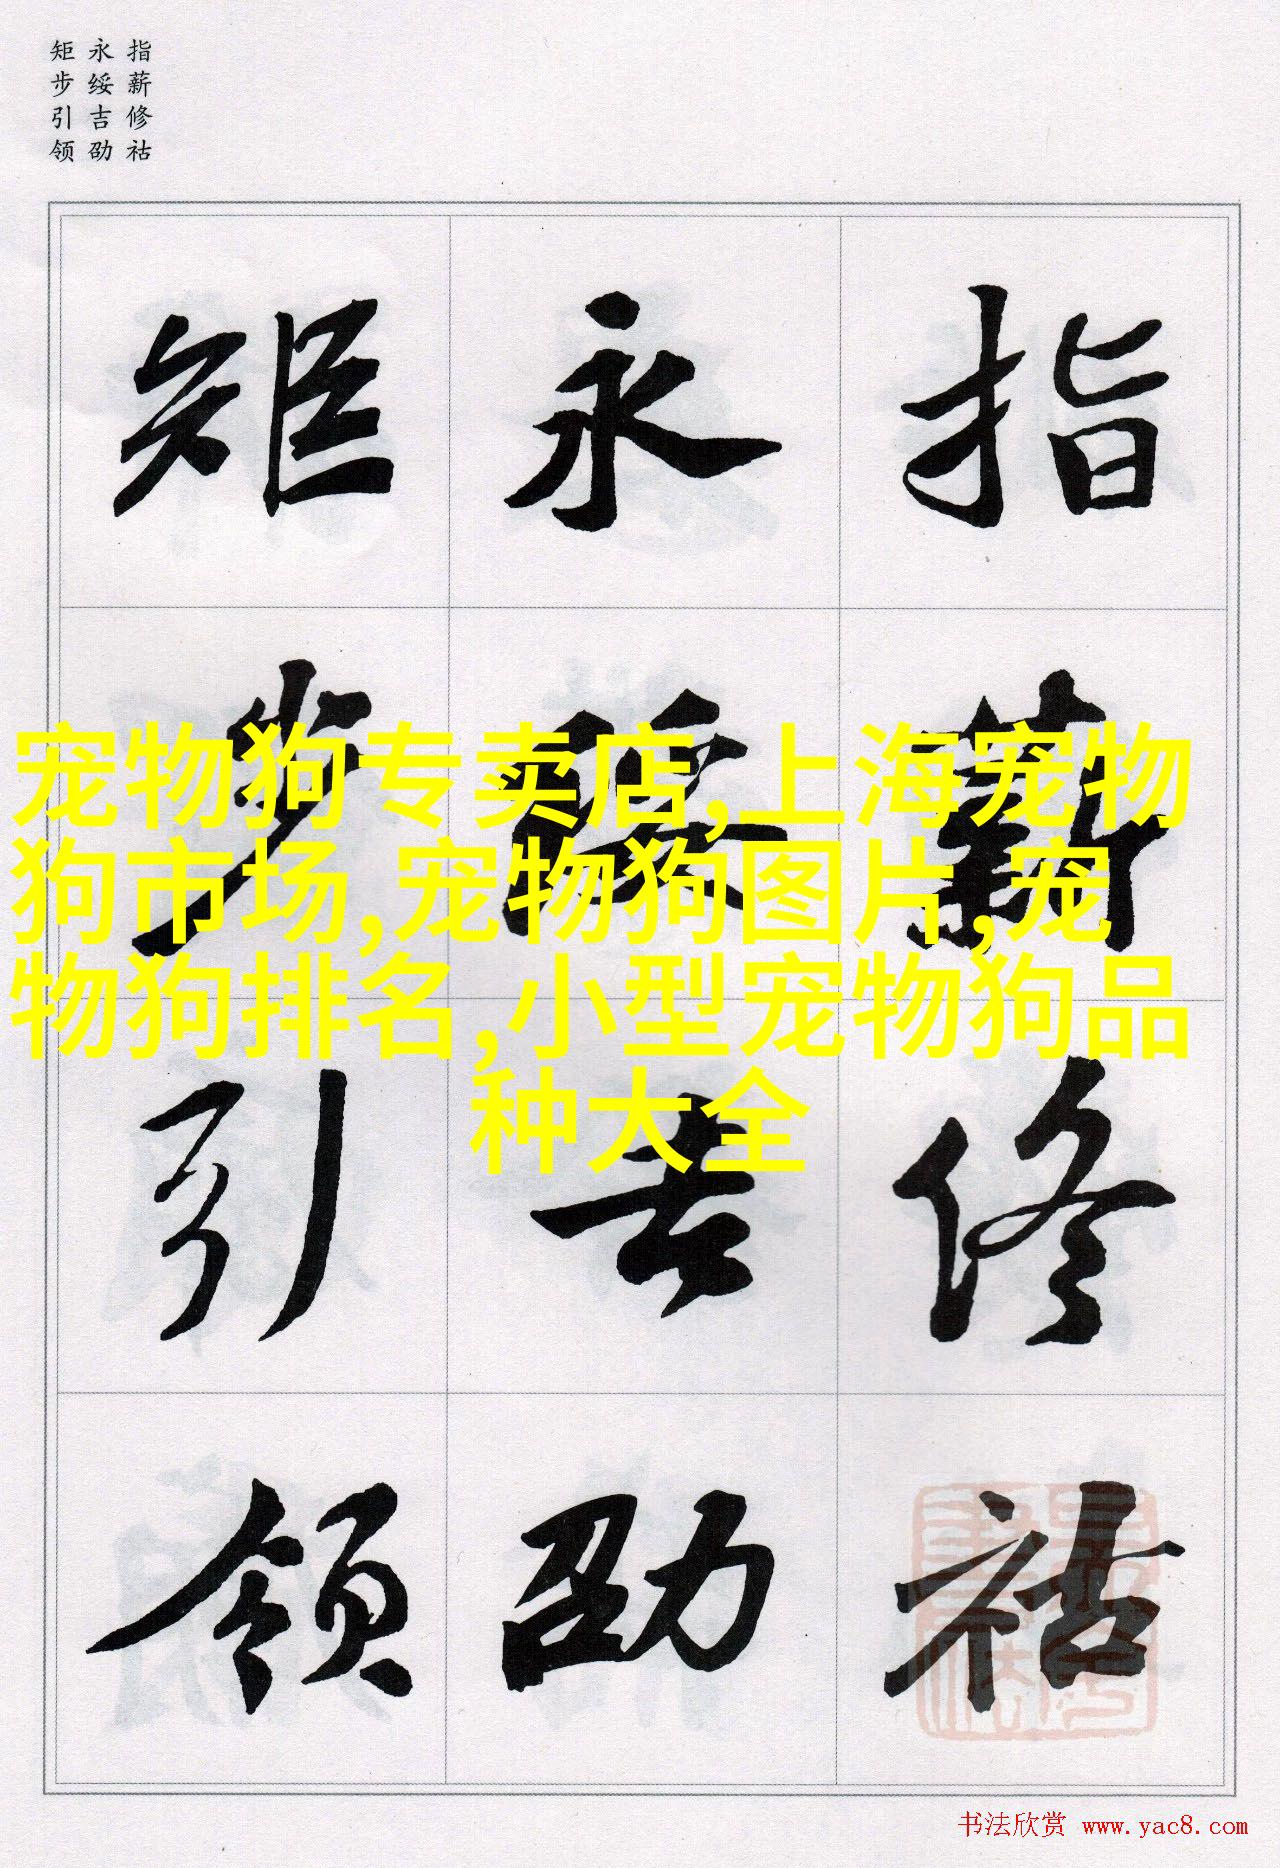 指薪修祜
永绥吉劭
矩步引领
指薪修祜
永绥吉劭
矩步引领
宠物狗专卖店,上海宠物
狗市场,宠物狗图片,宠
物狗排名,小型宠物狗品
种大全
书法欣赏 www.yac8.com